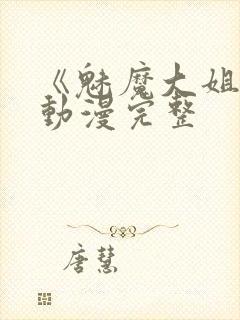 《魅魔大姐
動漫完整
唐慧